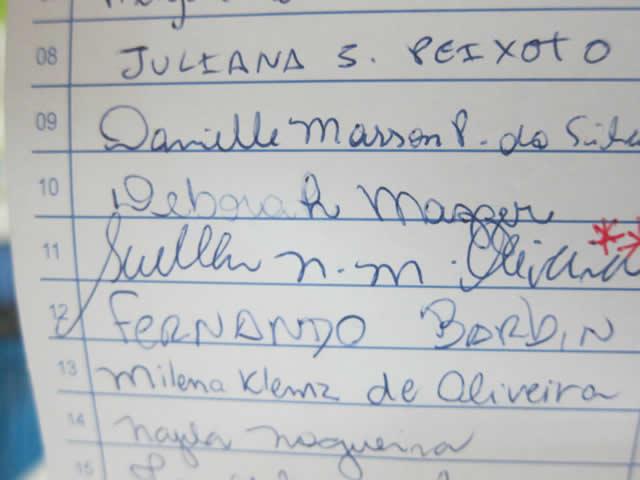 08 JULIANA S. PEIXOTO
09 Danielle Masson P. da Silva
10 Deborah
11 Suellen n. m. Oliveira
12 FERNANDO BORBIN
13 Milena Klemz de Oliveira
14 nayla nogueira
15